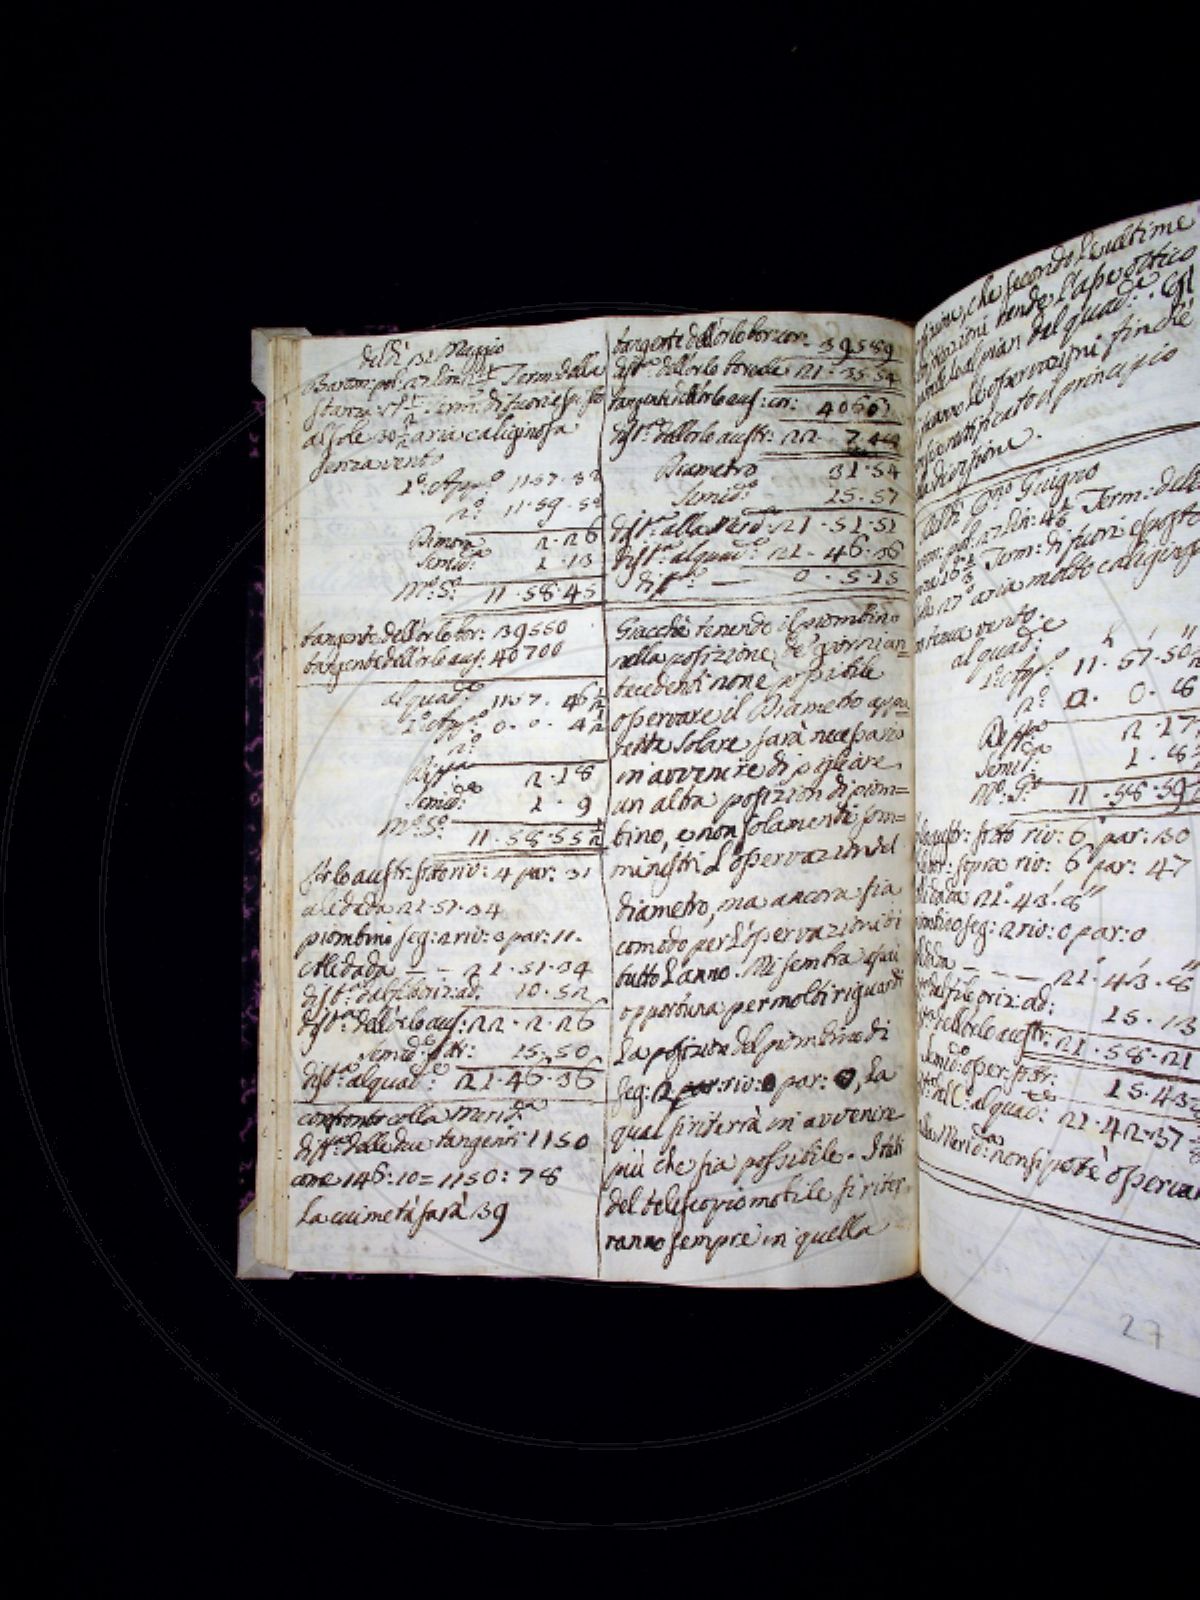 delli 31 Maggio
Barom: pol. 27 lin: Term: della
stanza Term: di fuori esposto
al Sole 30 aria caliginosa
senza vento
1º. App:º 11 57. 32
2º. 11. 59. 58
Dimora 2. 26
Semid:ª 1. 13
Mº: Sº: 11. 58. 45
tangente dell'orlo bor: 39550
tangente dell'orlo aus: 40700
al quad:te 11 57. 46 1/2
1º: App:º 0. 0. 4 1/2
2º.
Diff:ª 2. 18
Semid:ª 1. 9
Mº. Sº: 11. 58. 55 1/2
L'orlo austr: sotto riv: 4 par: 31
alidada 21. 51. 34
piombino seg: 2 riv: 3 par: 11.
Alidada — — 21. 51. 34
dist:ª dal filo oriz: ad. 10. 52
dist:ª dell'orlo aus: 22. 2. 26
Semid:º 15. 50
dist:ª al quad:te 21. 46. 36
confronto colla Merid:na
diff:ª delle due tangenti 1150
come 146: 10 = 1150: 78
La cui metà sarà 39
tangente dell'orlo bor: cor: 39589
dist:ª dell'orlo boreale 21. 35. 54
tangente dell'orlo aus: cor: 40661
dist:ª dell'orlo austr: 22. 7. 48
Diametro 31. 54
Semid:º 15. 57
dist:ª alla Merid:na 21. 51. 51
dist:ª al quad:te 21. 46. 36
diff:ª — 0. 5. 15
Giacchè tenendo il piombino
nella posizione de' giorni an=
tecedenti non è possibile
osservare il Diametro appa=
rente Solare sarà necessario
in avvenire di pigliare
un altra posizion di piom=
bino, e non solamente som=
ministri l'osservazion del
diametro, ma ancora sia
comodo per l'osservazioni di
tutto l'anno. Mi sembra assai
opportuna per molti riguardi
La posizion del piombino di
seg: 2 riv: 0 par: 0, La
qual si riterrà in avvenire
più che sia possibile. I fili
del telescopio mobile si riter=
ranno sempre in quella
che secondo le ultime
rende l'asse ottico
al pian del quad:te. Gl
osservazioni finchè
rettificato il principio
la divisione.
Delli Pmo. Giugno
pol. 27 lin: Term: della
Term: di fuori esposto
27º aria molto caliginosa
senza vento.
al quad:te
1º. App:º 11. 57. 50
2º. 0. 0. 8
Diff:ª 2. 17
Semid:ª 1. 8
Mº: Sº: 11. 58. 59
austr: sotto riv: 6 par: 30
bor: sopra riv: 6 par: 47
alidada 21º. 43'. 8"
piombino seg: 2 riv: 0 par: 0
— — — 21. 43. 8
dal filo oriz: ad: 15. 13
dell'orlo austr: 21. 58. 21
Semid:º osser:
al quad:te: 21. 42. 37
alla Merid:na non si potè osservare
27